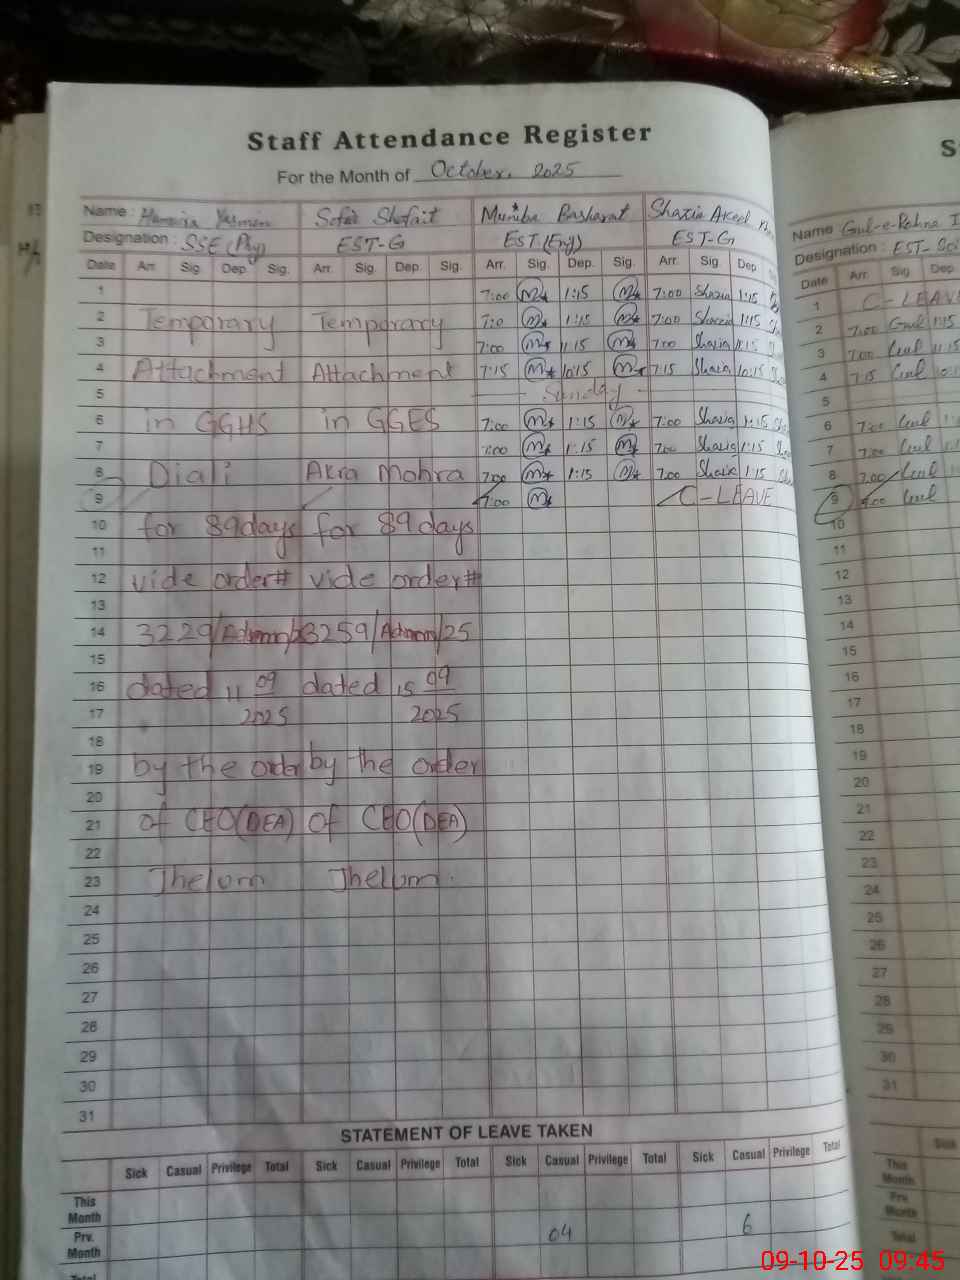 Staff Attendance Register
For the Month of October, 2025
Name : Humaira Yasmin Sofia Shafait Muniba Basharat Shazia Akeel
Designation : SSE (Phy) EST-G EST (Eng) EST-G
Date Arr. Sig. Dep. Sig. Arr. Sig. Dep. Sig. Arr. Sig. Dep. Sig. Arr. Sig. Dep.
1 7:00 1:15 7:00 Shazia 1:15
2 Temporary Temporary 7:0 1:15 7:00 Shazia 1:15
3 7:00 1:15 7:00 Shazia 1:15
4 Attachment Attachment 7:15 10:15 7:15 Shazia 10:15
5 Sunday
6 in GGHS in GGES 7:00 1:15 7:00 Shazia 1:15
7 7:00 1:15 7:00 Shazia 1:15
8 Dial Akra Mohra 7:00 1:15 7:00 Shazia 1:15
9 7:00 C-LEAVE
10 for 89 days for 89 days
11
12 vide order# vide order#
13
14 3229/Admn/ 3259/Admn/25
15
16 dated 11 09 dated 15 09
17 2025 2025
18
19 by the order by the order
20
21 of CEO(DEA) of CEO(DEA)
22
23 Jhelum Jhelum.
24
25
26
27
28
29
30
31
STATEMENT OF LEAVE TAKEN
Sick Casual Privilege Total Sick Casual Privilege Total Sick Casual Privilege Total Sick Casual Privilege Total
This Month
Prv. Month 04 6
Total
S
Name Gul-e-Rahna
Designation : EST-Sci
Date Arr. Sig. Dep
1 C-LEAVE
2 7:00 Gul 1:15
3 7:00 Gul 1:15
4 7:15 Gul 10:
5
6 7:00 Gul
7 7:00 Gul
8 7:00 Gul
9 7:00 Gul
10
11
12
13
14
15
16
17
18
19
20
21
22
23
24
25
26
27
28
29
30
31
Sick
This Month
Prv. Month
Total
09-10-25 09:45